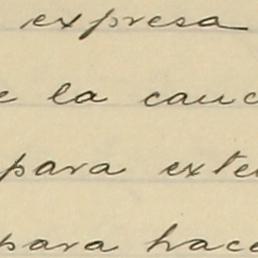 expresa
e la cauc
para exte
para hace